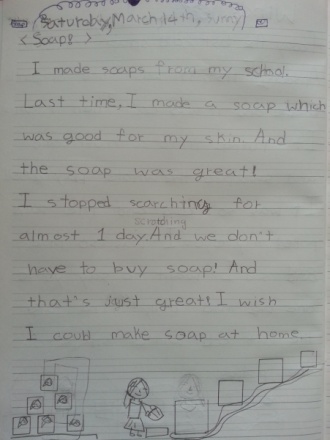 Saturday, March 14th, Sunny
< Soap! >
I made soaps from my school.
Last time, I made a soap which
was good for my skin. And
the soap was great!
I stopped scarching for
scratching
almost 1 day. And we don't
have to buy soap! And
that's just great! I wish
I could make soap at home.